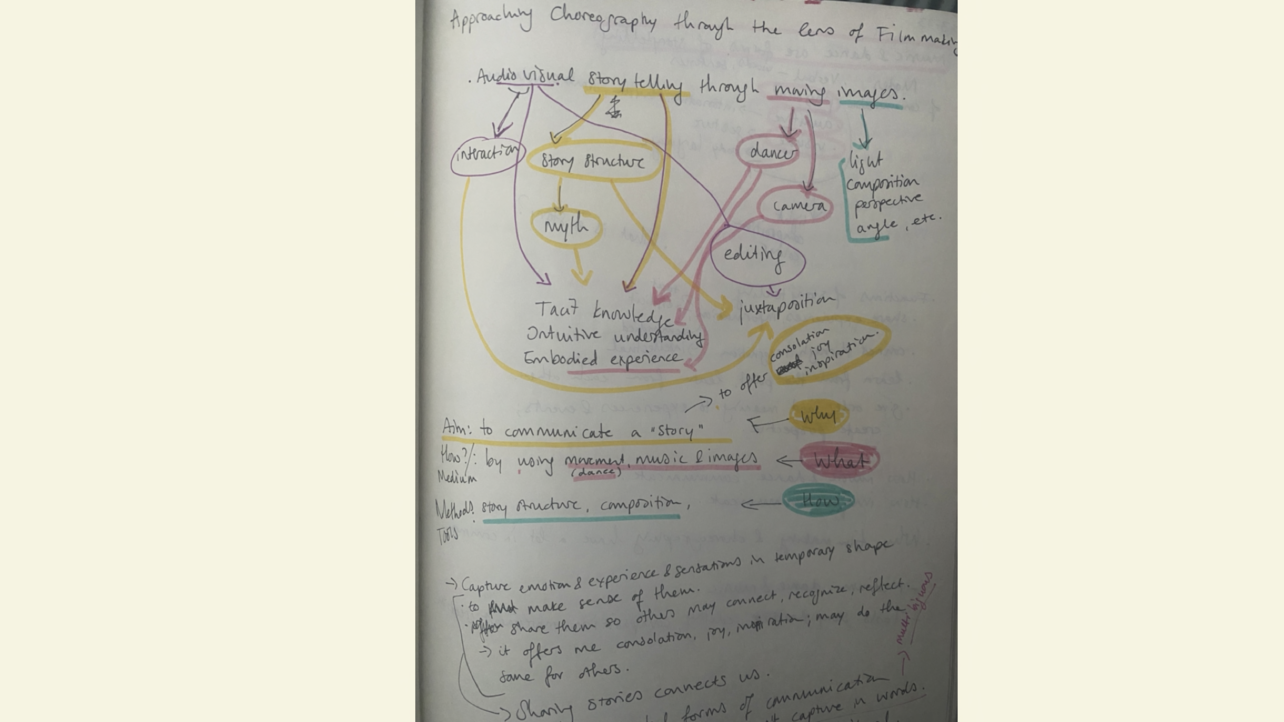 Approaching Choreography through the lens of Film making
. Audio visual story telling through moving images.
interaction
story structure
dancer
light
composition
perspective
angle, etc.
camera
myth
editing
Tacit knowledge
Intuitive understanding
Embodied experience
juxtaposition
consolation
joy
inspiration.
to offer
Aim: to communicate a "story"
Why
How?/: by using movement, music & images
Medium
(dance)
What
Methods: story structure, composition,
Tools
How
→ Capture emotion & experience & sensations in temporary shape
· to make sense of them.
· share them so others may connect, recognize, reflect.
→ it offers me consolation, joy, inspiration; may do the
same for others.
→ Sharing stories connects us.
forms of communication
capture in words.